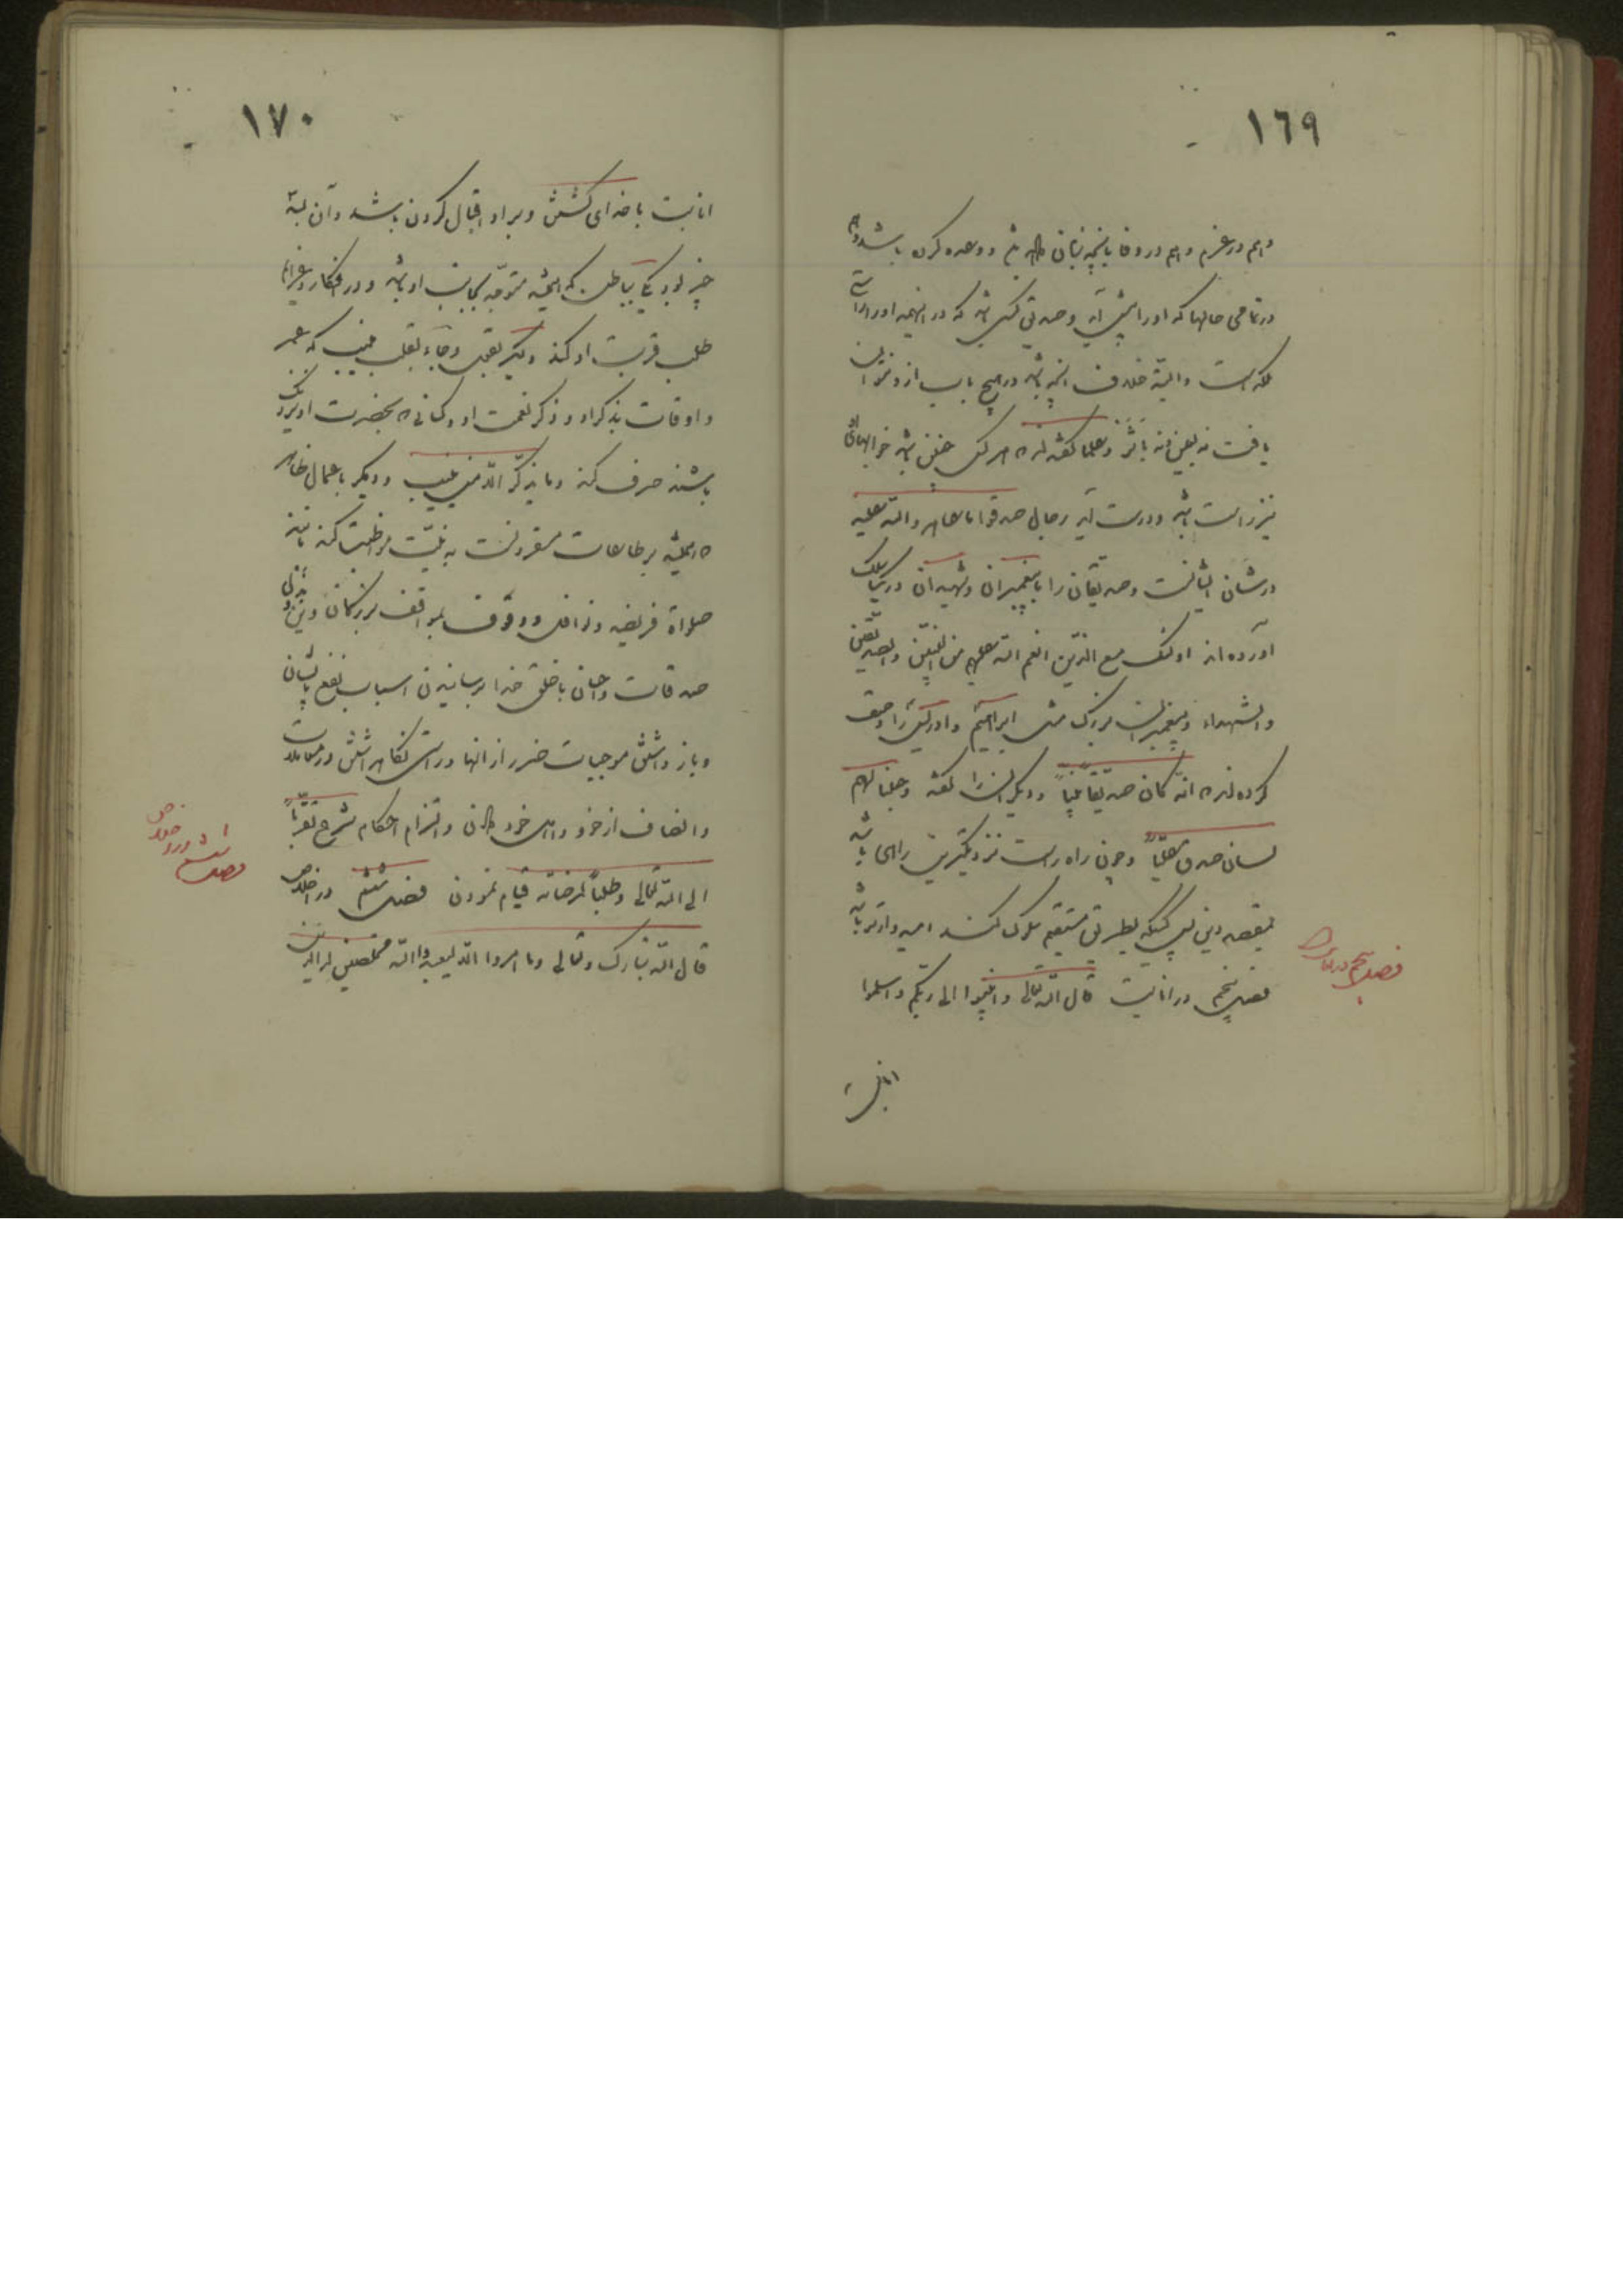 ١٦٩
و هم در عزم و هم در وفا بآنچه زبان داده باشد و وعده کرده باشد و هم
در تمامی حالها که او را پیش آید و صدیق کسی باشد که در اینهمه او را راستی
ملکه است و البته خلاف آنچه باشد در هیچ باب از و نتوان
یافت نه بعین و نه باثر و علما گفته‌اند که هر کس چنین باشد خوابهای او
نیز راست باشد و درست آید رجال صدقوا ما عاهدوا الله علیه
در شان ایشانست و صدیقان را با پیغمبران و شهیدان در یک سلک
آورده‌اند اولئک مع الذین انعم الله علیهم من النبیین والصدیقین
والشهداء و پیغمبران بزرگ مثل ابراهیم و ادریس را وصف
کرده‌اند که انه کان صدیقا نبیاً و دیگرانرا گفته وجعلنا لهم
لسان صدق علیّاً و چون راه راست نزدیکترین راهی باشد
بمقصد پس کسیکه بطریق مستقیم سلوک کند امیدوارتر باشد
فصل پنجم در انابت قال الله تعالی و انیبوا الی ربکم واسلموا
فصل پنجم در انابت
انابت
١٧٠
انابت با خدای گشتن و بر او اقبال کردن باشد و آن بسه
چیز بود یکی بباطن که همیشه متوجه بجانب او باشد و در افکار و عزائم
طلب قربت او کند و جاء بقلب منیب
و اوقات بذکر او و ذکر نعمت او و کسانی که بحضرت او نزدیک
باشند صرف کند وما یتذکر الا من ینیب و دیگر باعمال ظاهر
که همیشه بر طاعات مقرون به نیت مواظبت کند مانند
صلوة فریضه و نوافل و وقوف بمواقف بزرگان دین و بذل
صدقات و احسان با خلق خدا و رسانیدن اسباب نفع بایشان
و باز داشتن موجبات ضرر از آنها و راستی نگاه داشتن در معاملات
و انصاف از خود و اهل خود دادن و التزام احکام شرع تقرباً
الی الله تعالی و طلباً لمرضاته قیام نمودن فصل ششم در اخلاص
قال الله تبارک و تعالی وما امروا الا لیعبدوا الله مخلصین له الدین
فصل ششم در اخلاص